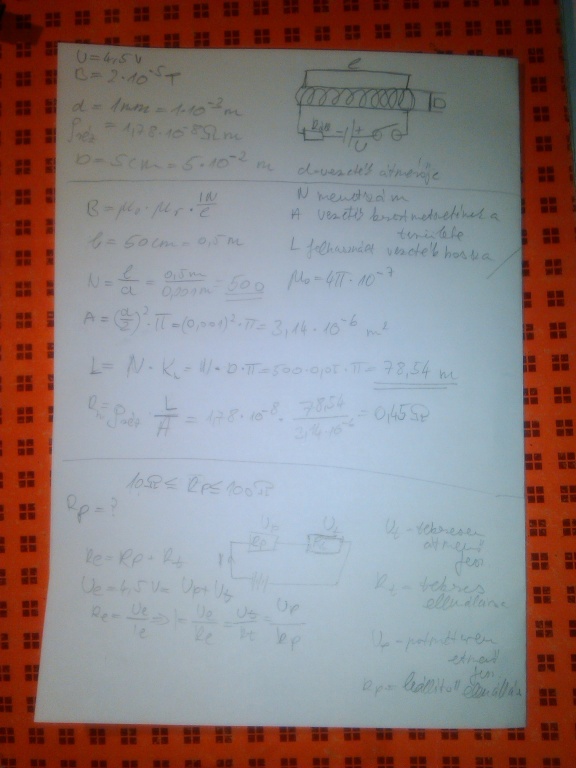 U = 4,5 V
B = 2·10⁻⁵ T
d = 1mm = 1·10⁻³ m
ρ = 1,78·10⁻⁸ Ωm
D = 5cm = 5·10⁻² m
l
D
U
d=vezeték átmérője
N menetszám
A vezeték keresztmetszetének a
területe
L felhasznált vezeték hossza
μ₀ = 4π·10⁻⁷
B = μ₀·μᵣ·IN/l
l = 50cm = 0,5 m
N = l/d = 0,5m/0,001m = 500
A = (d/2)²·π = (0,001)²·π = 3,14·10⁻⁶ m²
L = N·K = N·D·π = 500·0,05·π = 78,54 m
R = ρ·L/A = 1,78·10⁻⁸·78,54/3,14·10⁻⁶ = 0,45Ω
10Ω ≤ Rp ≤ 100Ω
Rp = ?
Up Ut
Rp Rt
Re = Rp + Rt
Ue = 4,5 V = Up + Ut
Re = Ue/Ie => I = Ue/Re = Ut/Rt = Up/Rp
Ut - tekercsen
átmenő
fesz
Rt - tekercs
ellenállása
fesz
Rp = beállított ellenállás